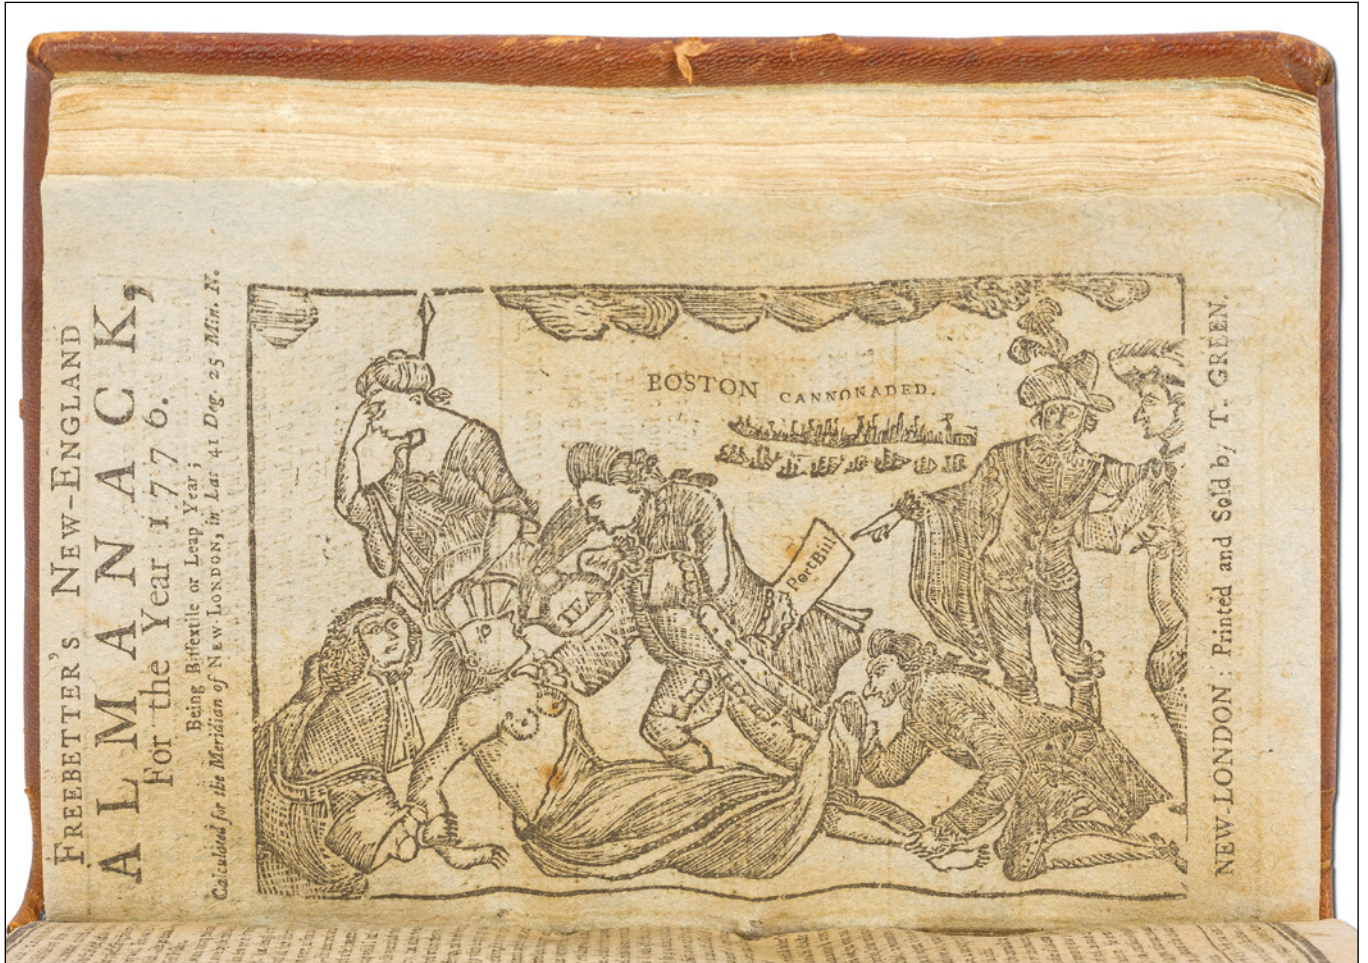 FREEBETTER'S NEW-ENGLAND
ALMANACK,
For the Year 1776.
Being Bissextile or Leap Year;
Calculated for the Meridian of NEW-LONDON, in Lat 41 Deg. 25 Min. N.
BOSTON CANNONADED.
TEA
Port Bill
NEW-LONDON: Printed and Sold by T. GREEN.